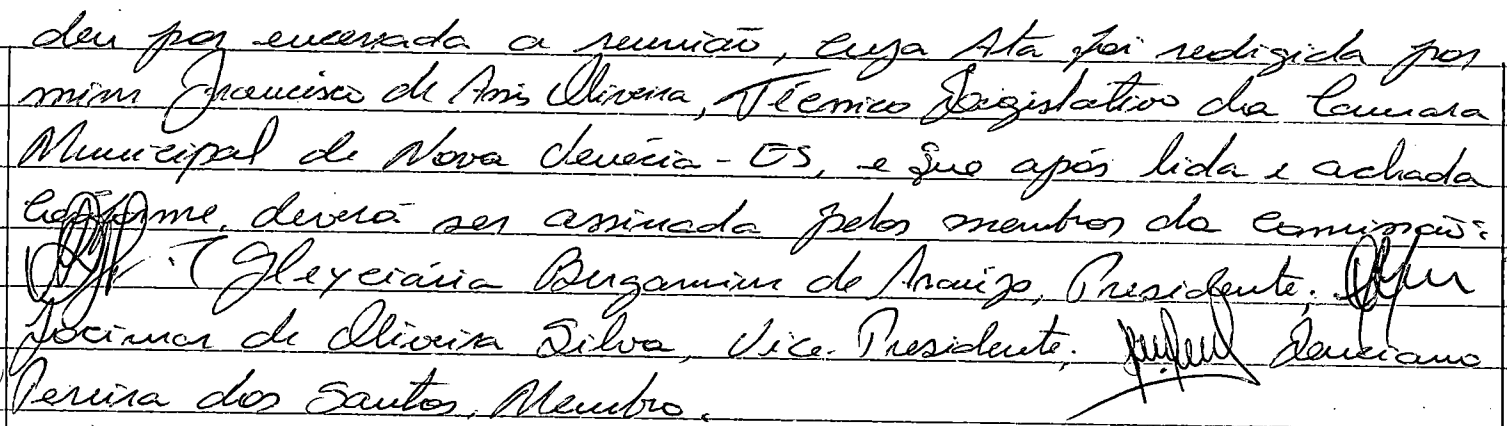 deu por encerrada a reunião, cuja Ata foi redigida por
mim Francisco de Assis Oliveira, Técnico Legislativo da Camara
Municipal de Nova Venécia-ES, e que após lida e achada
conforme, deverá ser assinada pelos membros da comissão:
(Gleyciária Bergamim de Araújo, Presidente;
Jocimar de Oliveira Silva, Vice-Presidente; Damiano
Pereira dos Santos, Membro.